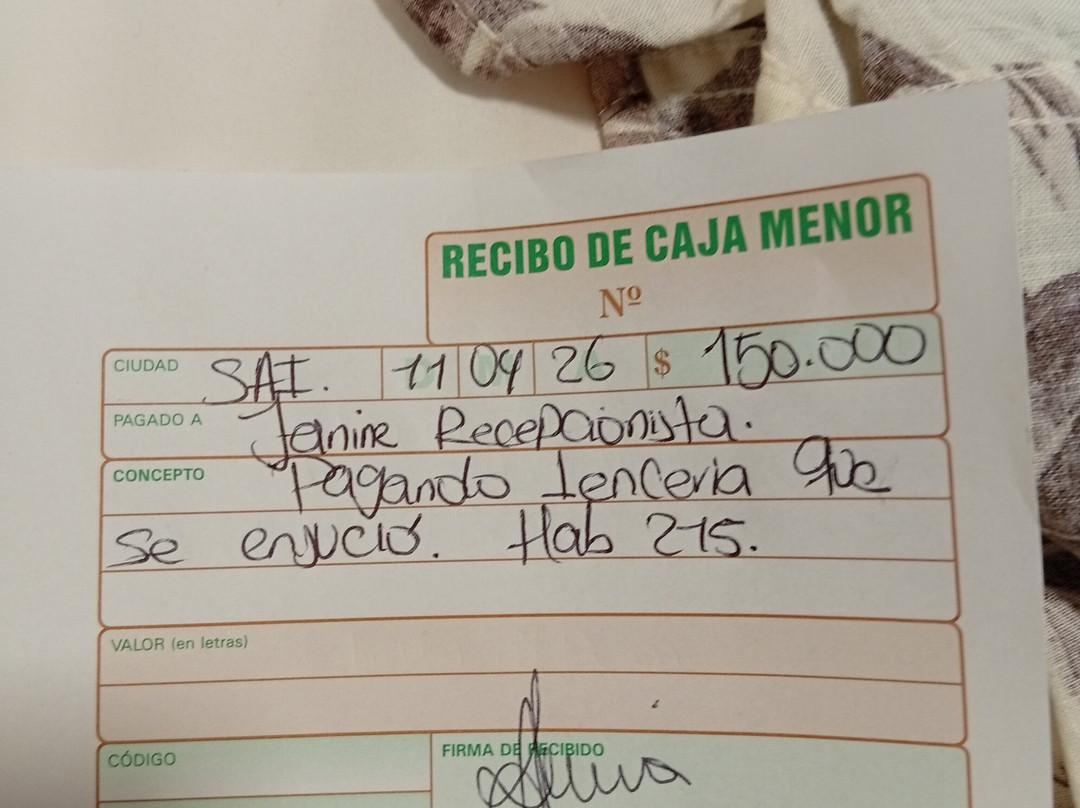 RECIBO DE CAJA MENOR
Nº
CIUDAD SAI. 11 04 26 $ 150.000
PAGADO A Janine Recepcionista.
CONCEPTO Pagando lenceria que
se ensucio. Hab 215.
VALOR (en letras)
CÓDIGO
FIRMA DE RECIBIDO